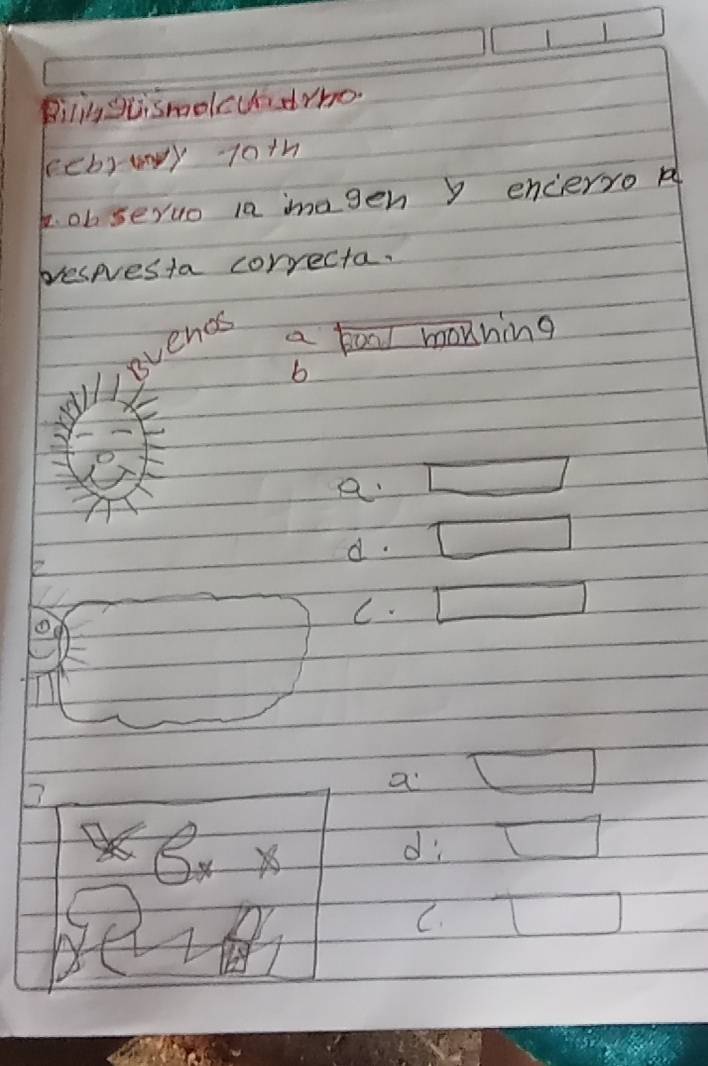 february 10th
1. observo la imagen y encierro la
respuesta correcta.
Buenos
a good morning
b
a.
d.
2
c.
3
a.
d.
c.